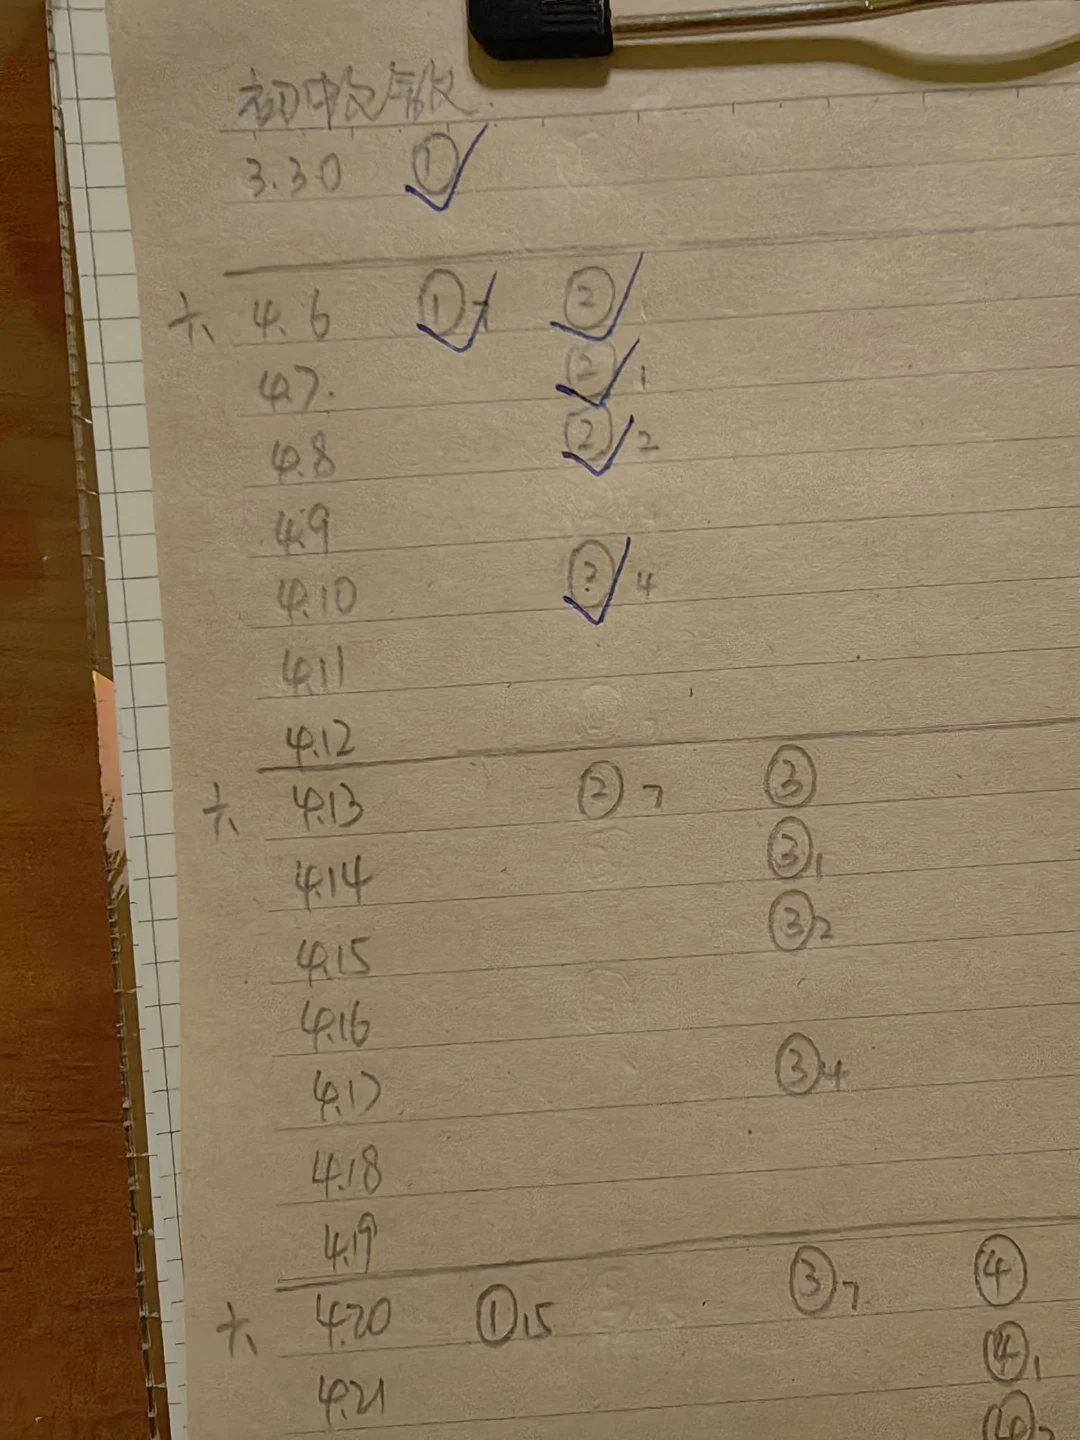 初中文言文
3.30 ①
六 4.6 ①7 ②
4.7. ② 1
4.8 ② 2
4.9
4.10 ② 4
4.11
4.12
六 4.13 ② 7 ③
4.14 ③ 1
4.15 ③ 2
4.16
4.17 ③ 4
4.18
4.19
六 4.20 ① 15 ③ 7 ④
4.21 ④ 1
④ 2